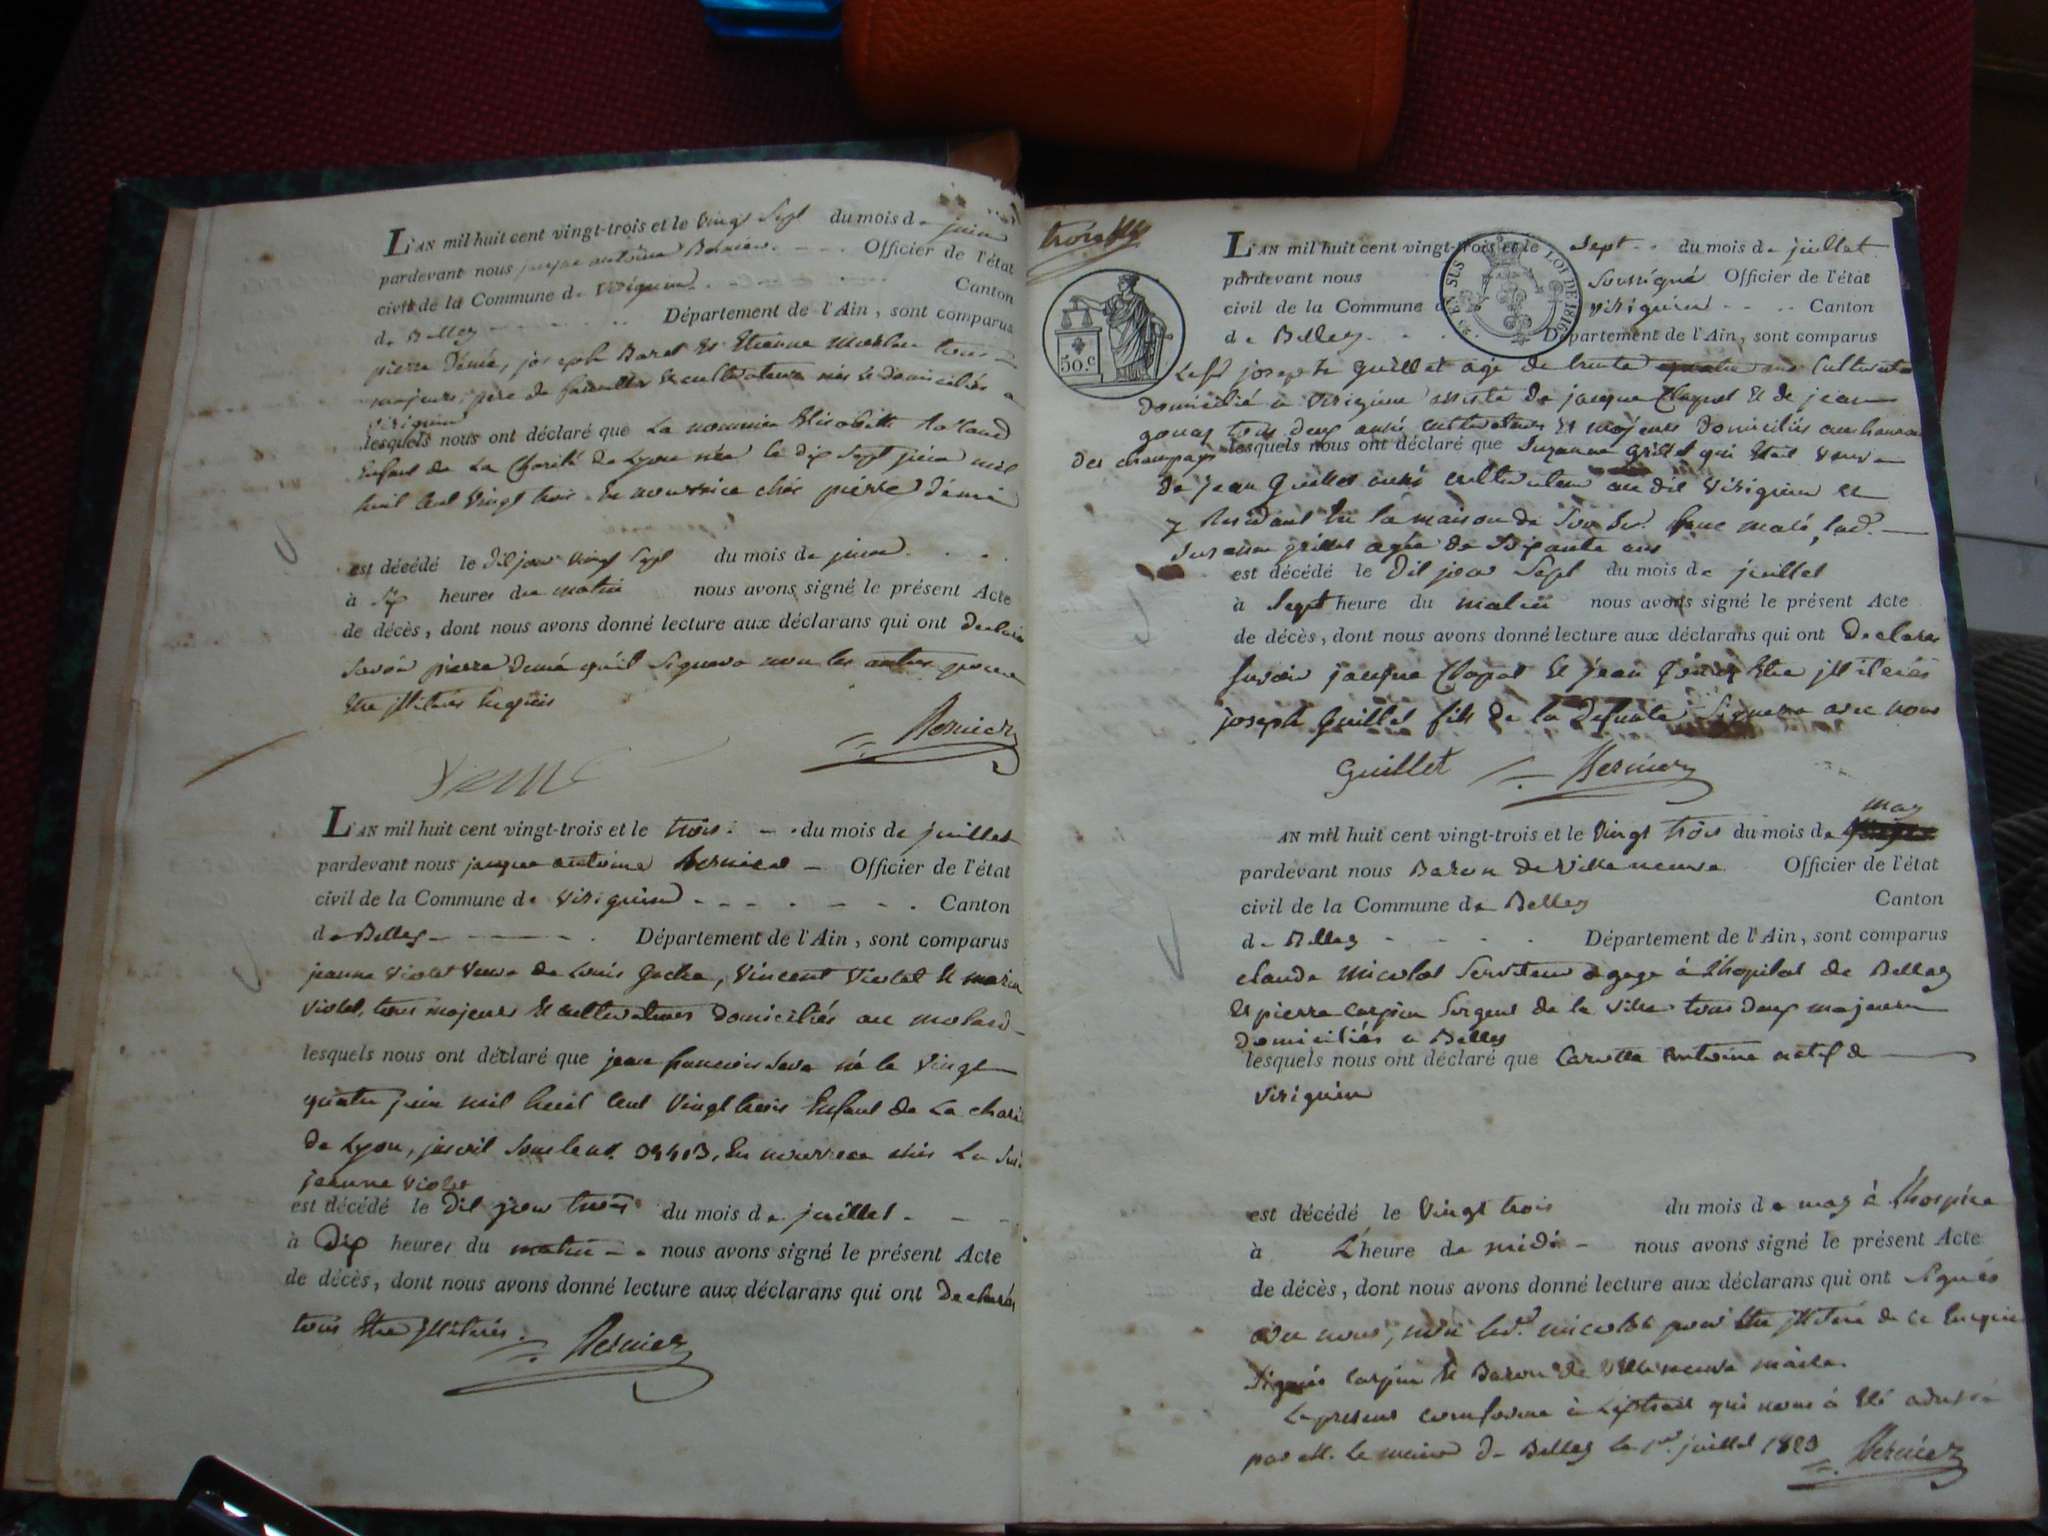 L'AN mil huit cent vingt-trois et le vingt Sept du mois de juin
pardevant nous jacque antoine Bernier Officier de l'état
civil de la Commune de Virignin Canton
de Belley Département de l'Ain, sont comparus
pierre Demé, joseph Baret Et Etienne tous
majeurs, père de famille & cultivateurs nés & domiciliés a
Virignin
lesquels nous ont déclaré que La nommée Elisabeth
Enfant de La Charité de Lyon née le dix Sept juin mil
huit Cent Vingt trois En nourrice chés pierre Démé
est décédé le dit jour vingt Sept du mois de juin
à Six heures du matin nous avons signé le présent Acte
de décès, dont nous avons donné lecture aux déclarans qui ont declaré
Savoir pierre Demé qu'il Signera non les autres pour
Etre illiterés Enquis
Bernier
Demé
L'AN mil huit cent vingt-trois et le trois du mois de juillet
pardevant nous jacque antoine Bernier Officier de l'état
civil de la Commune de Virignin Canton
de Belley Département de l'Ain, sont comparus
jeanne Violet Veuve de Louis Gache, Vincent Violet & marie
Violet, tous majeurs & cultivateurs domiciliés au molard
lesquels nous ont déclaré que jean francois né le Vingt
quatre juin mil huit Cent Vingt trois Enfant de La chari
de Lyon, jnscrit Sous le no. En nourrice chés La
jeanne Violet
est décédé le dit jour trois du mois de juillet
à Dix heures du matin nous avons signé le présent Acte
de décès, dont nous avons donné lecture aux déclarans qui ont declarés
tous Etre illiterés.
Bernier
EN SUS LOI DE 1816
50.c
L'AN mil huit cent vingt-trois et le Sept du mois de juillet
pardevant nous Soussigné Officier de l'état
civil de la Commune d Virignin Canton
de Belley Département de l'Ain, sont comparus
Le joseph Guillet agé de trente cultivateur
domicilié a Virignin assisté de jacque Chapot & de jean
tous deux aussi cultivateurs Et majeurs domiciliés au hameau
des champs
lesquels nous ont déclaré que Suzanne Grillet qui Etait Veuve
de jean Guillet aussi cultivateur au dit Virignin Et
y Residant En la maison de Son
Suzanne Grillet agée de Soixante ans
est décédé le dit jour Sept du mois de juillet
à Sept heure du matin nous avons signé le présent Acte
de décès, dont nous avons donné lecture aux déclarans qui ont declarés
Savoir jacque Chapot & jean Etre illiterés
joseph Guillet fils de la defunte Signera avec nous
Guillet Bernier
AN mil huit cent vingt-trois et le Vingt trois du mois de may
pardevant nous Baron de Villeneuve Officier de l'état
civil de la Commune de Belley Canton
de Belley Département de l'Ain, sont comparus
claude micolot Serviteur a gage à l'hopital de Belley
Et pierre Carpin Sergent de la Ville tous deux majeurs
domiciliés a Belley
lesquels nous ont déclaré que Antoine natif de
Virignin
est décédé le Vingt trois du mois de may à l'hospice
à L'heure de midi nous avons signé le présent Acte
de décès, dont nous avons donné lecture aux déclarans qui ont Signés
avec nous, non led. micolot pour Etre illiteré de ce Enquis
Signés Carpin & Baron de Villeneuve maire.
Le present conforme à L'extrait qui nous à Eté adressé
par M. Le maire de Belley le 1er. juillet 1823 Bernier